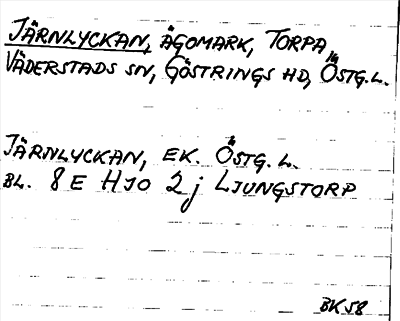 JÄRNLYCKAN, ÄGOMARK, TORPA,
VÄDERSTADS SN, GÖSTRINGS HD, ÖSTG. L.
JÄRNLYCKAN, EK. ÖSTG. L.
BL. 8 E HJO 2 j LJUNGSTORP
BK 58